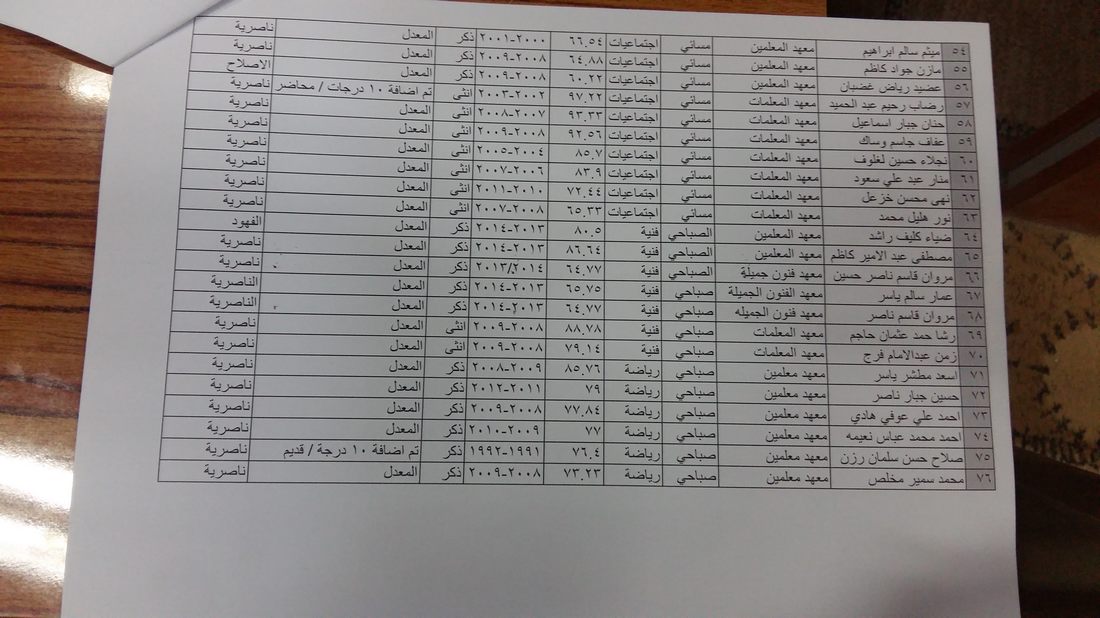 ٥٤ ميثم سالم ابراهيم معهد المعلمين مسائي اجتماعيات ٦٦.٥٤ ٢٠٠٠-٢٠٠١ ذكر المعدل ناصرية
٥٥ مازن جواد كاظم معهد المعلمين مسائي اجتماعيات ٦٤.٨٨ ٢٠٠٨-٢٠٠٩ ذكر المعدل ناصرية
٥٦ عضيد رياض غضبان معهد المعلمين مسائي اجتماعيات ٦٠.٢٢ ٢٠٠٨-٢٠٠٩ ذكر المعدل الاصلاح
٥٧ رضاب رحيم عبد الحميد معهد المعلمات مسائي اجتماعيات ٩٧.٢٢ ٢٠٠٢-٢٠٠٣ انثى تم اضافة ١٠ درجات / محاضر ناصرية
٥٨ حنان جبار اسماعيل معهد المعلمات مسائي اجتماعيات ٩٣.٣٣ ٢٠٠٧-٢٠٠٨ انثى المعدل ناصرية
٥٩ عفاف جاسم وساك معهد المعلمات مسائي اجتماعيات ٩٢.٥٦ ٢٠٠٨-٢٠٠٩ انثى المعدل ناصرية
٦٠ نجلاء حسين لغلوف معهد المعلمات مسائي اجتماعيات ٨٥.٧ ٢٠٠٤-٢٠٠٥ انثى المعدل ناصرية
٦١ منار عبد علي سعود معهد المعلمات مسائي اجتماعيات ٨٣.٩ ٢٠٠٦-٢٠٠٧ انثى المعدل ناصرية
٦٢ نهى محسن خزعل معهد المعلمات مسائي اجتماعيات ٧٢.٤٤ ٢٠١٠-٢٠١١ انثى المعدل ناصرية
٦٣ نور هليل محمد معهد المعلمات مسائي اجتماعيات ٦٥.٣٣ ٢٠٠٨-٢٠٠٧ انثى المعدل ناصرية
٦٤ ضياء كليف راشد معهد المعلمين الصباحي فنية ٨٠.٥ ٢٠١٣-٢٠١٤ ذكر المعدل الفهود
٦٥ مصطفى عبد الامير كاظم معهد المعلمين الصباحي فنية ٨٦.٦٤ ٢٠١٣-٢٠١٤ ذكر المعدل ناصرية
٦٦ مروان قاسم ناصر حسين معهد فنون جميلة الصباحي فنية ٦٤.٧٧ ٢٠١٣/٢٠١٤ ذكر المعدل ناصرية
٦٧ عمار سالم ياسر معهد الفنون الجميلة صباحي فنية ٦٥.٧٥ ٢٠١٣-٢٠١٤ ذكر المعدل الناصرية
٦٨ مروان قاسم ناصر معهد فنون الجميله صباحي فنية ٦٤.٧٧ ٢٠١٣-٢٠١٤ ذكر المعدل الناصرية
٦٩ رشا حمد عثمان حاجم معهد المعلمات صباحي فنية ٨٨.٧٨ ٢٠٠٨-٢٠٠٩ انثى المعدل ناصرية
٧٠ زمن عبدالامام فرج معهد المعلمات صباحي فنية ٧٩.١٤ ٢٠٠٨-٢٠٠٩ انثى المعدل ناصرية
٧١ اسعد مطشر ياسر معهد معلمين صباحي رياضة ٨٥.٧٦ ٢٠٠٩-٢٠٠٨ ذكر المعدل ناصرية
٧٢ حسين جبار ناصر معهد معلمين صباحي رياضة ٧٩ ٢٠١١-٢٠١٢ ذكر المعدل ناصرية
٧٣ احمد علي عوفي هادي معهد معلمين صباحي رياضة ٧٧.٨٤ ٢٠٠٨-٢٠٠٩ ذكر المعدل ناصرية
٧٤ احمد محمد عباس نعيمه معهد معلمين صباحي رياضة ٧٧ ٢٠٠٩-٢٠١٠ ذكر المعدل ناصرية
٧٥ صلاح حسن سلمان رزن معهد معلمين صباحي رياضة ٧٦.٤ ١٩٩١-١٩٩٢ ذكر تم اضافة ١٠ درجة / قديم ناصرية
٧٦ محمد سمير مخلص معهد معلمين صباحي رياضة ٧٣.٢٣ ٢٠٠٨-٢٠٠٩ ذكر المعدل ناصرية